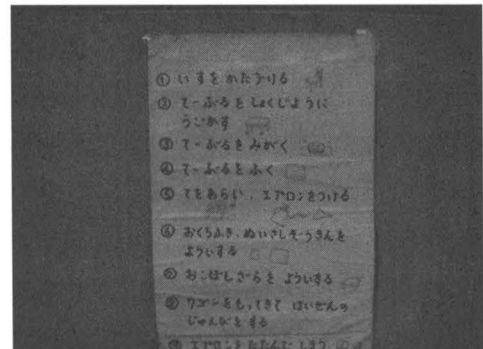 ① いすをかたづける
② てーぶるをしょくじように
うごかす
③ てーぶるをみがく
④ てーぶるをふく
⑤ てをあらい、エプロンをつける
⑥ おくちふき、ぬいさしぞうきんを
よういする
⑦ おこぼしざらを よういする
⑧ ワゴンをもってきて はいぜんの
じゅんびをする
⑨ エプロンをたたんで しまう